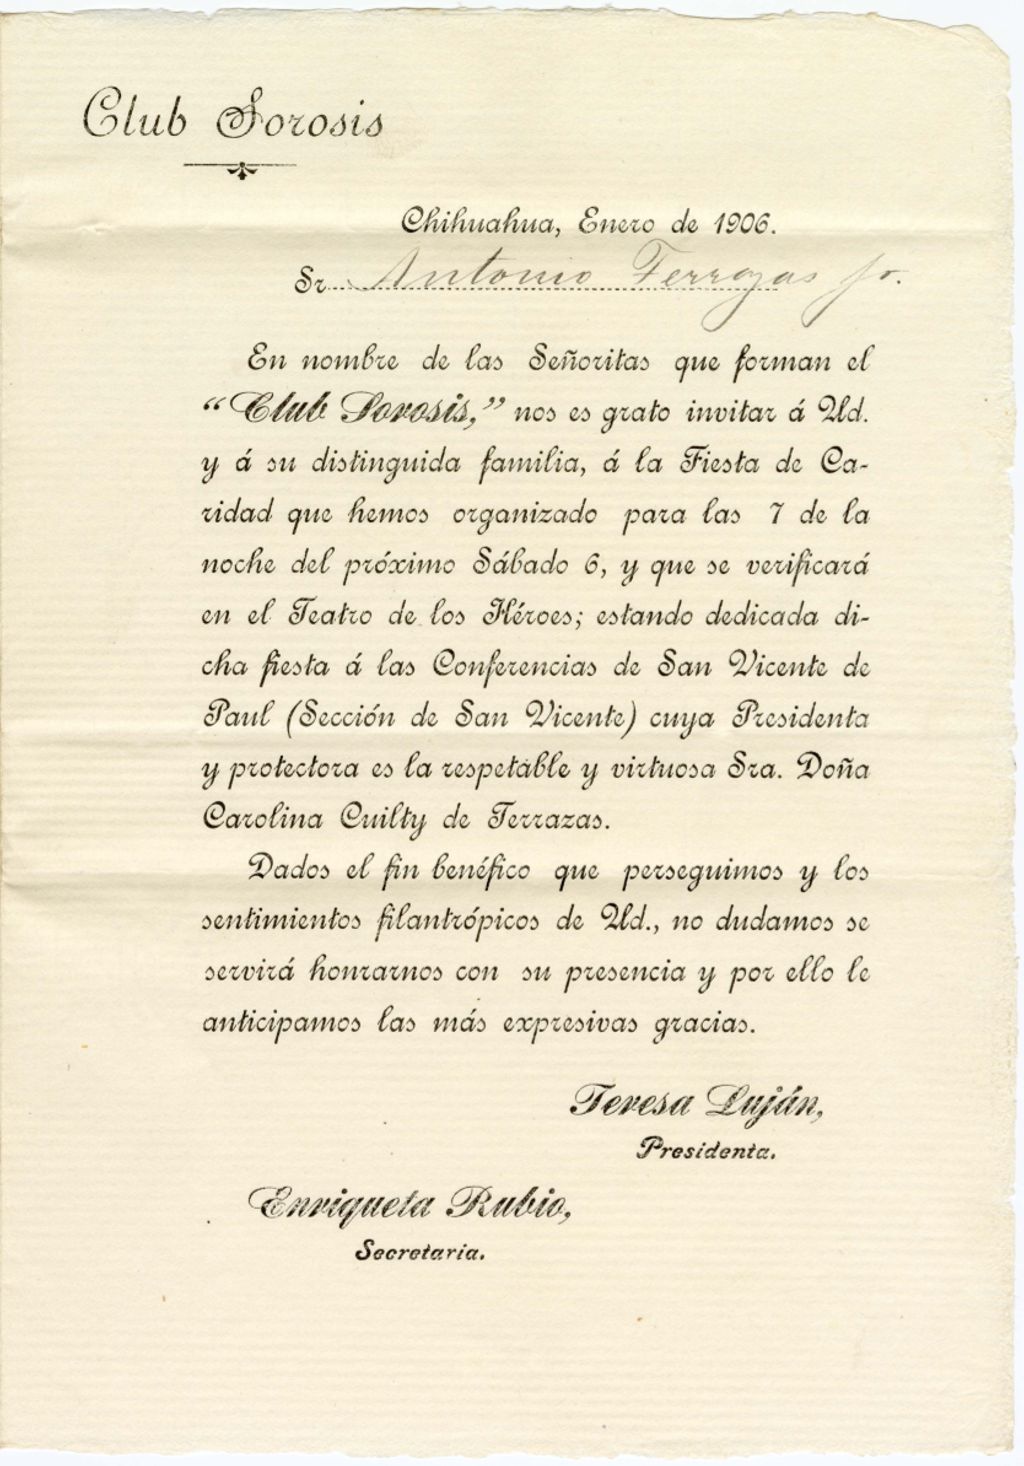 Club Sorosis
Chihuahua, Enero de 1906.
Sr. Antonio Terrazas Jr.
En nombre de las Señoritas que forman el
“Club Sorosis,” nos es grato invitar á Ud.
y á su distinguida familia, á la Fiesta de Ca-
ridad que hemos organizado para las 7 de la
noche del próximo Sábado 6, y que se verificará
en el Teatro de los Héroes; estando dedicada di-
cha fiesta á las Conferencias de San Vicente de
Paul (Sección de San Vicente) cuya Presidenta
y protectora es la respetable y virtuosa Sra. Doña
Carolina Cuilty de Terrazas.
Dados el fin benéfico que perseguimos y los
sentimientos filantrópicos de Ud., no dudamos se
servirá honrarnos con su presencia y por ello le
anticipamos las más expresivas gracias.
Teresa Luján,
Presidenta.
Enriqueta Rubio,
Secretaria.